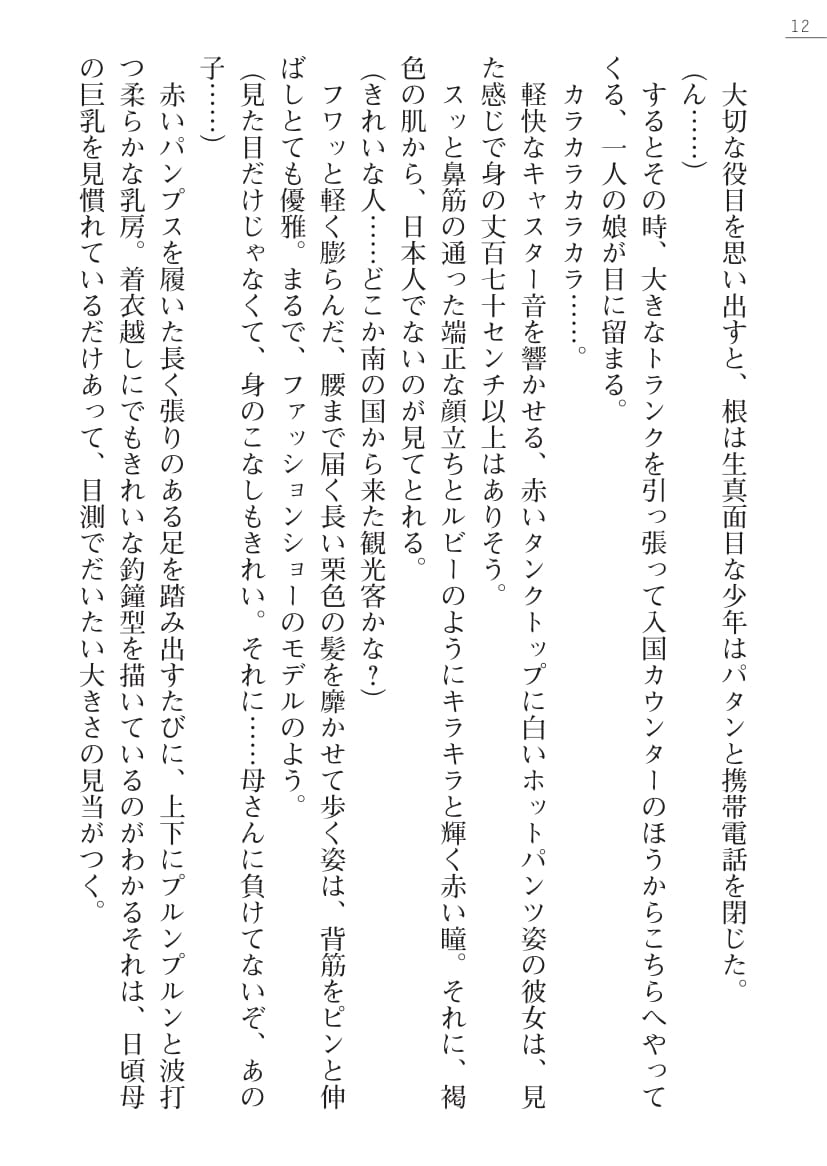 12
大切な役目を思い出すと、根は生真面目な少年はパタンと携帯電話を閉じた。
(ん……)
するとその時、大きなトランクを引っ張って入国カウンターのほうからこちらへやって
くる、一人の娘が目に留まる。
カラカラカラカラ……。
軽快なキャスター音を響かせる、赤いタンクトップに白いホットパンツ姿の彼女は、見
た感じで身の丈百七十センチ以上はありそう。
スッと鼻筋の通った端正な顔立ちとルビーのようにキラキラと輝く赤い瞳。それに、褐
色の肌から、日本人でないのが見てとれる。
(きれいな人……どこか南の国から来た観光客かな?)
フワッと軽く膨らんだ、腰まで届く長い栗色の髪を靡かせて歩く姿は、背筋をピンと伸
ばしとても優雅。まるで、ファッションショーのモデルのよう。
(見た目だけじゃなくて、身のこなしもきれい。それに……母さんに負けてないぞ、あの
子……)
赤いパンプスを履いた長く張りのある足を踏み出すたびに、上下にプルンプルンと波打
つ柔らかな乳房。着衣越しにでもきれいな釣鐘型を描いているのがわかるそれは、日頃母
の巨乳を見慣れているだけあって、目測でだいたい大きさの見当がつく。